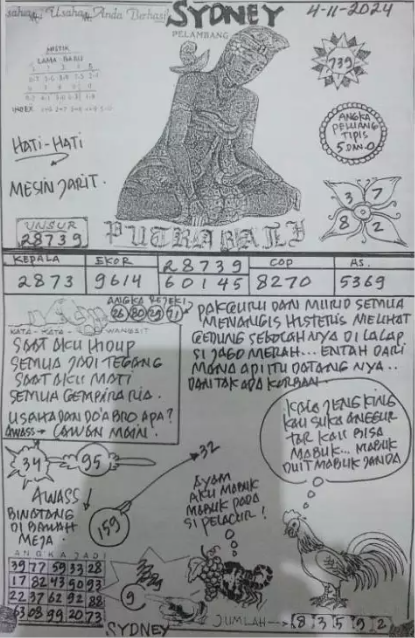 Usaha Anda Berhasil
SYDNEY
4-11-2024
PELAMBANG
MISTIK
LAMA BARU
INDEX
HATI-HATI
MESIN JARIT.
739
ANGKA
PELUANG
TIPIS
5 DAN 0
3 7
8 2
UNSUR
28739
PUTRA BALI
KEPALA EKOR 28739 COP AS.
2873 9614 60145 8270 5369
ANGKA REJEKI
KATA-KATA WANGSIT
SAAT AKU HIDUP
SEMUA JADI TEGANG
SAAT AKU MATI
SEMUA GEMBIRA RIA.
USAHA DAN DO'A BRO APA?
AWASS → LAWAN MAIN.
PAK GURU DAN MURID SEMUA
MENANGIS HISTERIS MELIHAT
GEDUNG SEKOLAHNYA DI LALAP
SI JAGO MERAH... ENTAH DARI
MANA API ITU DATANG NYA..
DAN TAK ADA KORBAN.
KALAJENGKING
KAU SUKA ANGGUR
TAK KAU BISA
MABUK... MABUK
DUIT MABUK JANDA
34 95
32
159
AWASS
BINATANG
DI BAWAH
MEJA.
AYAM
AKU MABUK
MABUK PADA
SI PELACUR!
ANGKA JADI
39 77 59 33 28
17 82 43 90 93
22 37 62 92 88
63 08 99 20 73
9
SYDNEY
JUMLAH → 8 3 5 9 2